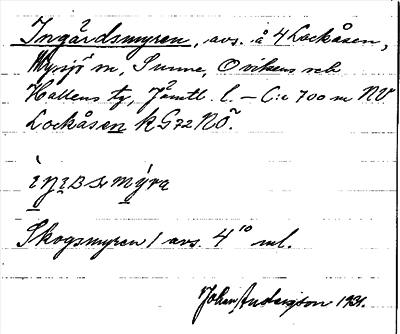 Ingårdsmyren, avs. å 4 Lockåsen,
Myssjö sn, Sunne, Ovikens och
Hallens tg, Jämtl. l. – C:a 700 m NV
Lockåsen k G72 NÖ.
Skogsmyren 1 avs. 4¹⁰ ml.
Johan Andersson 1931.